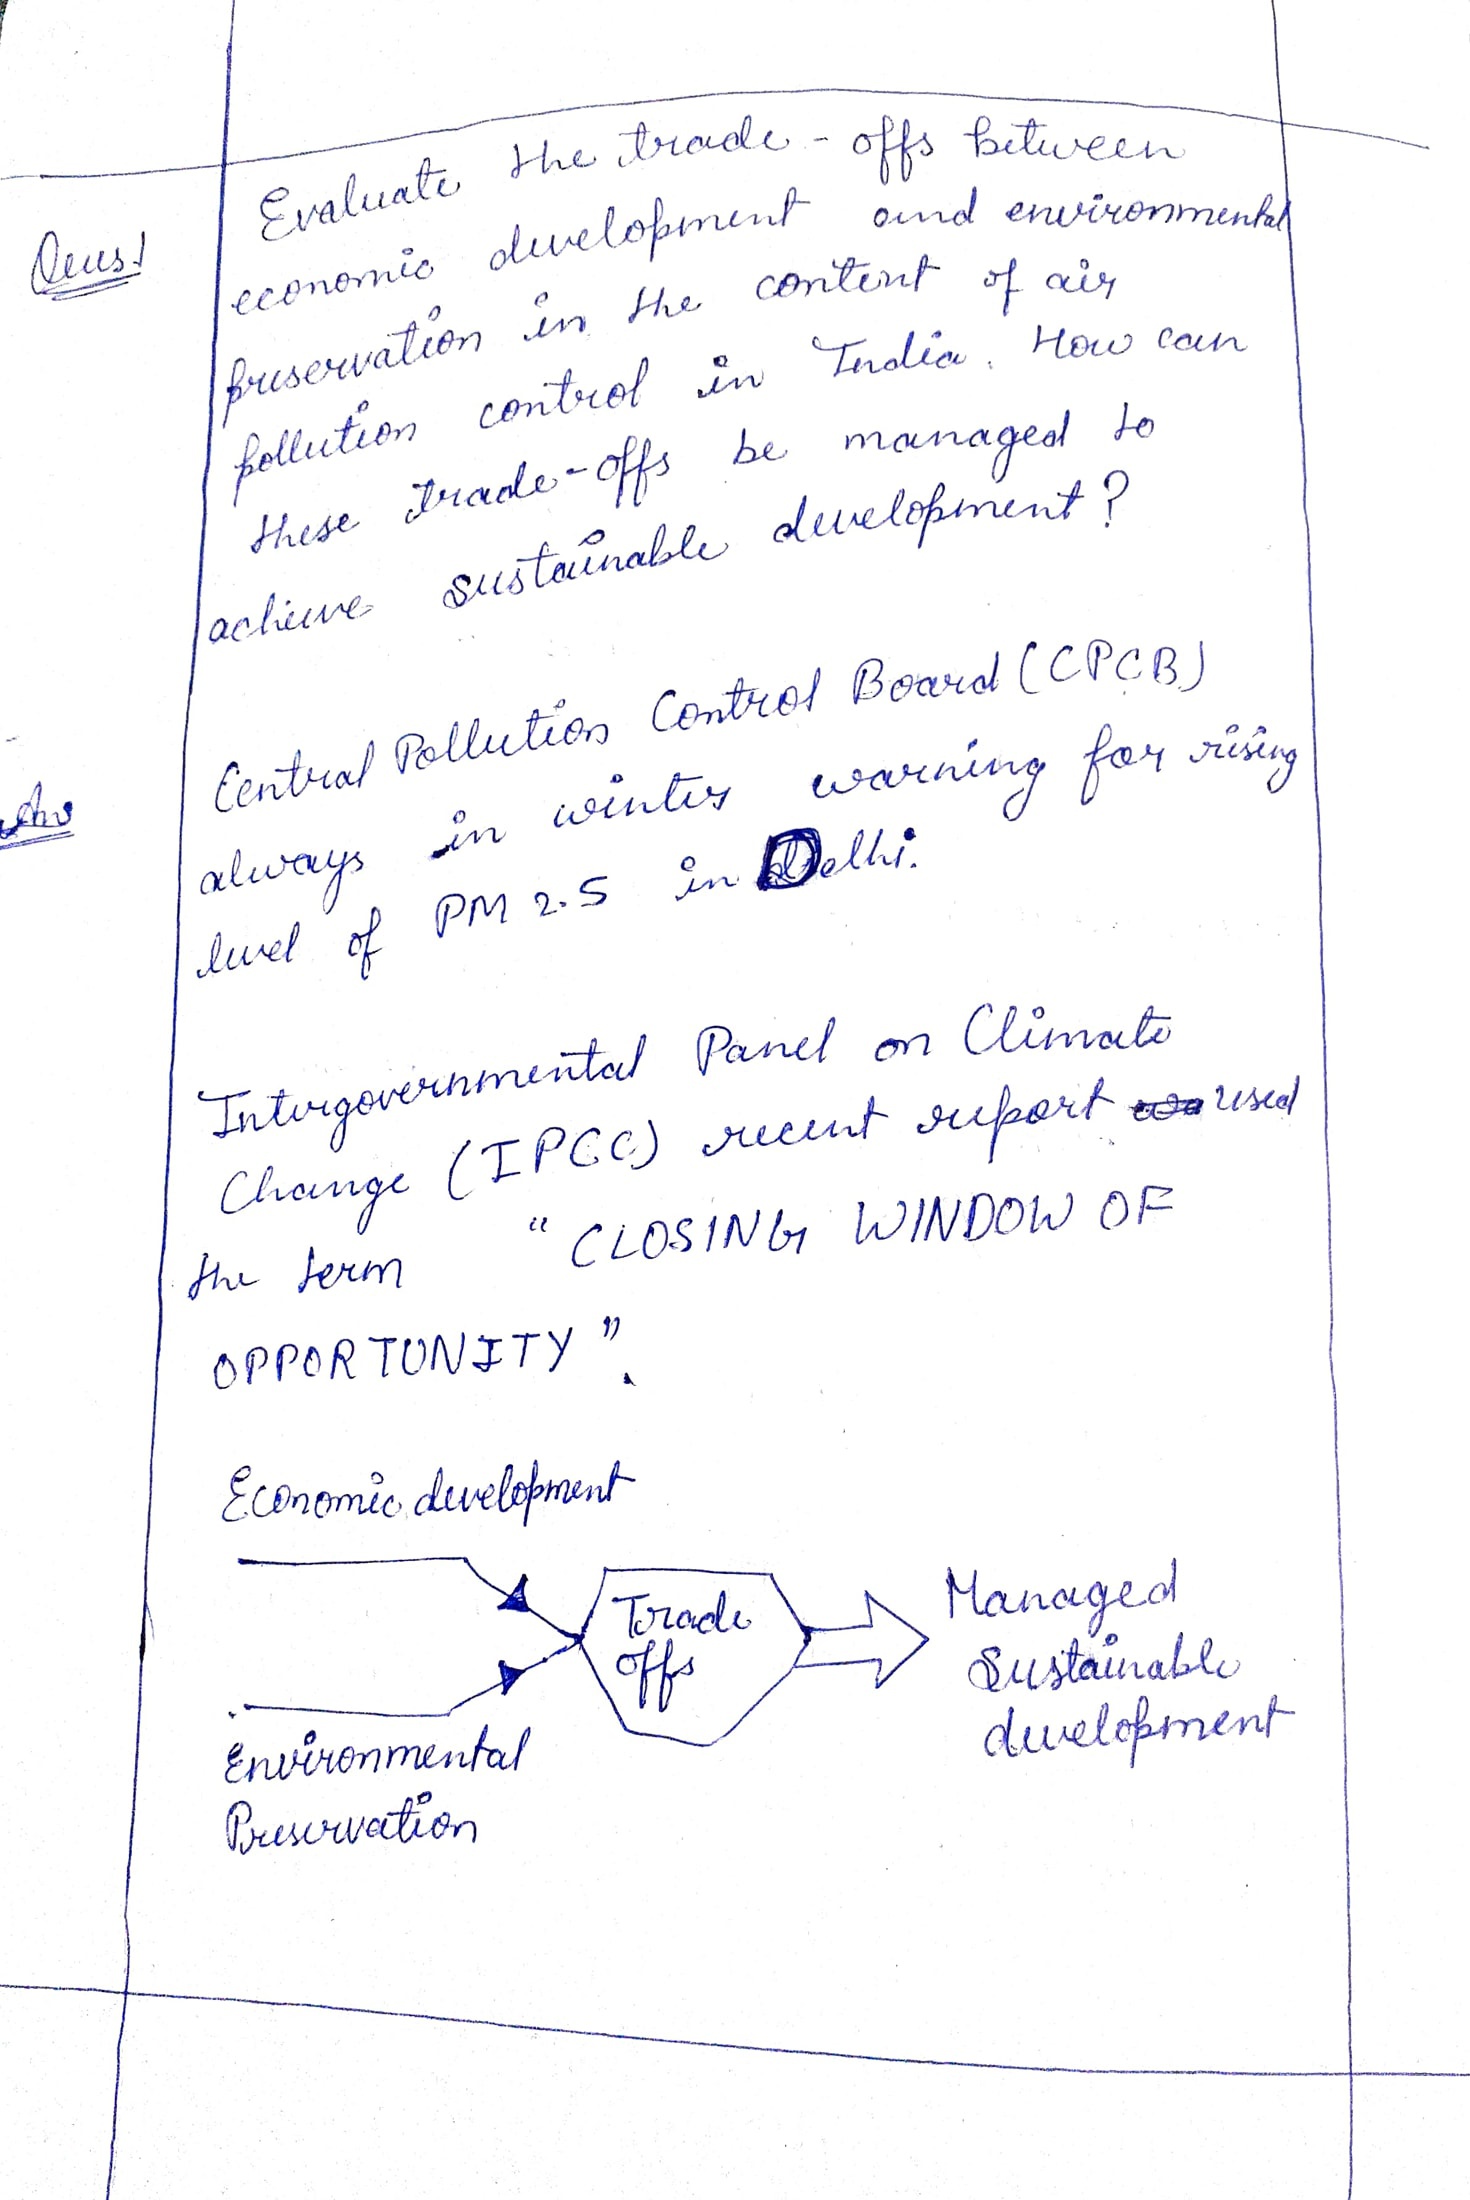 Ques.1
Evaluate the trade-offs between
economic development and environmental
preservation in the content of air
pollution control in India. How can
these trade-offs be managed to
achieve sustainable development?
Ans
Central Pollution Control Board (CPCB)
always in winter warning for rising
level of PM 2.5 in Delhi.
Intergovernmental Panel on Climate
Change (IPCC) recent report used
the term "CLOSING WINDOW OF
OPPORTUNITY".
Economic development
Trade
offs
Managed
Sustainable
development
Environmental
Preservation